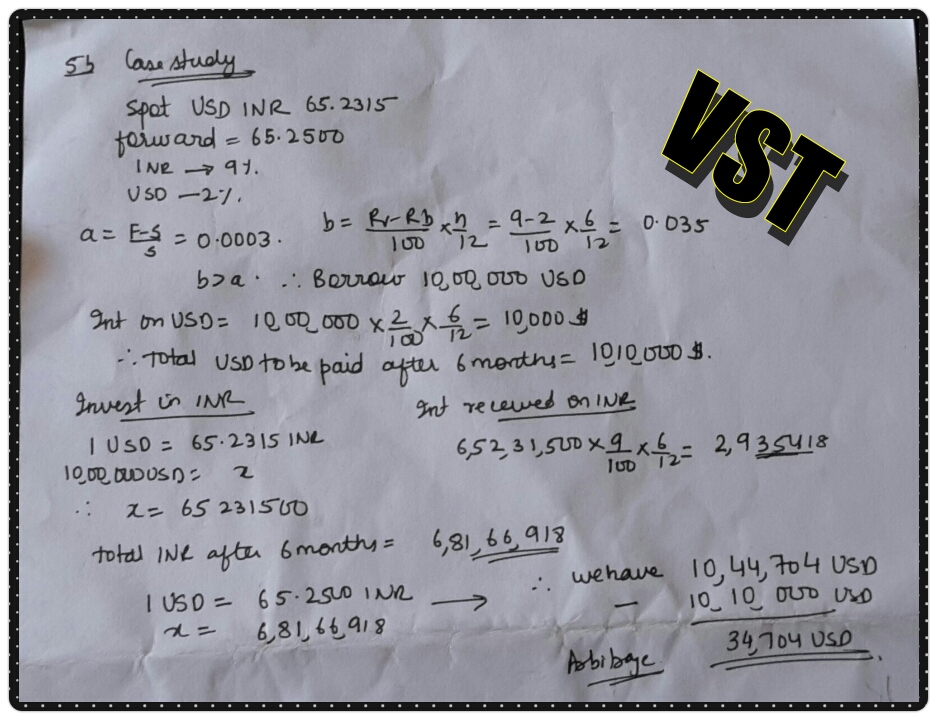 5b Case study
VST
Spot USD INR 65.2315
forward = 65.2500
INR → 9%.
USD – 2%.
a = F-S/S = 0.0003. b = Rv-Rb/100 × n/12 = 9-2/100 × 6/12 = 0.035
b>a. ∴ Borrow 10,00,000 USD
Int on USD = 10,00,000 × 2/100 × 6/12 = 10,000 $
∴ Total USD to be paid after 6 months = 10,10,000 $.
Invest in INR
Int received on INR
1 USD = 65.2315 INR
6,52,31,500 × 9/100 × 6/12 = 2,935418
10,00,000 USD = x
∴ x = 65 231500
total INR after 6 months = 6,81,66,918
1 USD = 65.2500 INR →
x = 6,81,66,918
∴ we have 10,44,704 USD
– 10,10,000 USD
Arbibage 34,704 USD.